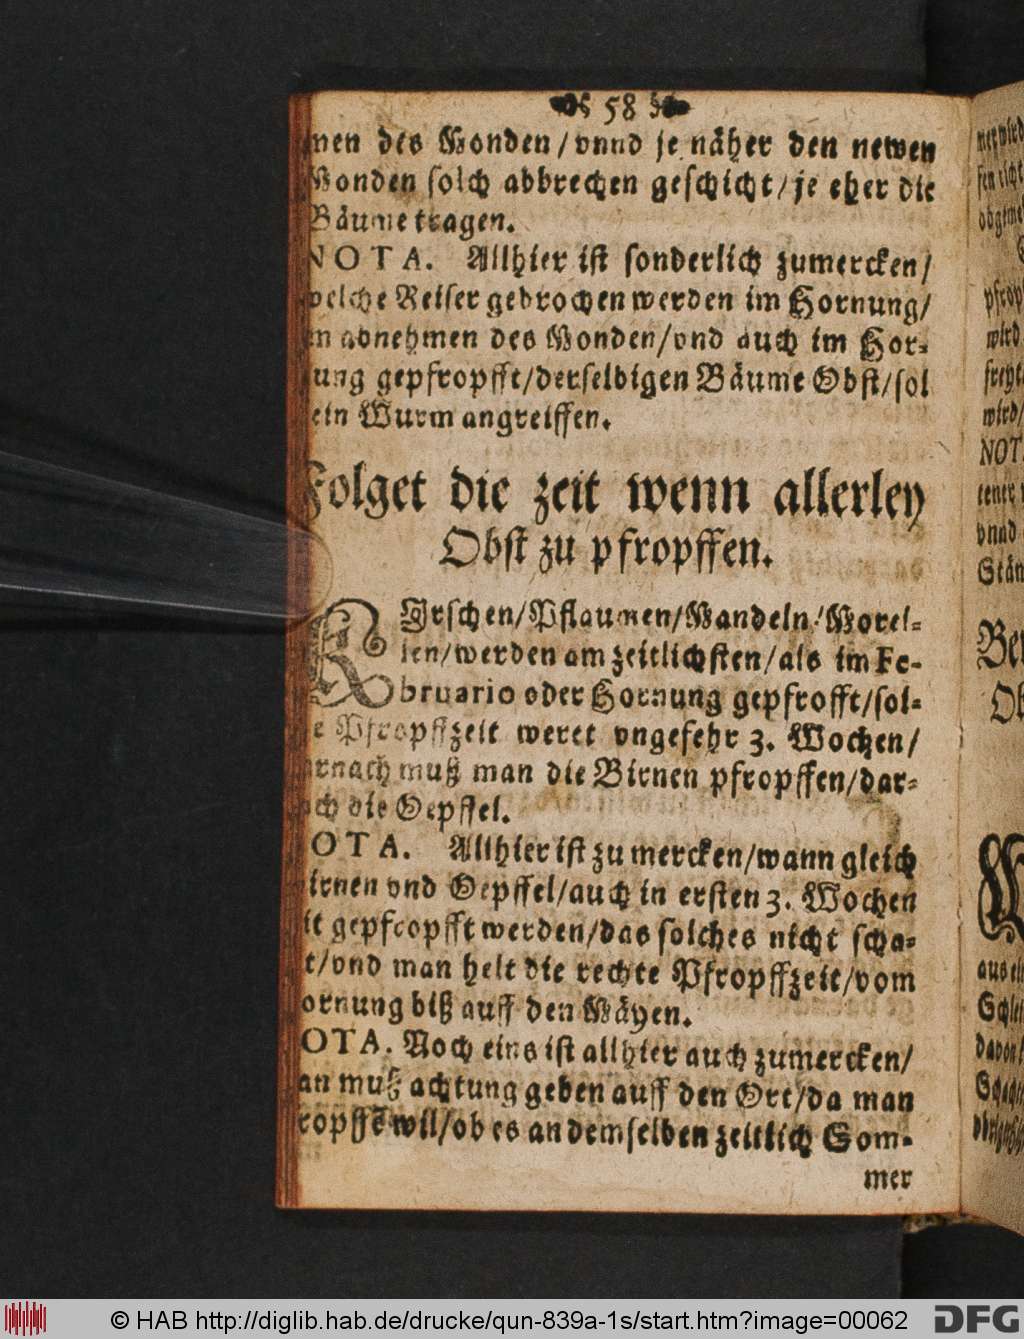 58
nen des Monden/vnnd je näher den newen
Monden solch abbrechen geschicht/je eher die
Bäume tragen.
NOTA. Allhier ist sonderlich zumercken/
welche Reiser gebrochen werden im Hornung/
im abnehmen des Monden/vnd auch im Hor-
nung gepfropfft/derselbigen Bäume Obst/sol
ein Wurm angreiffen.
Folget die zeit wenn allerley
Obst zu pfropffen.
KIrschen/Pflaumen/Mandeln/Morel-
len/werden am zeitlichsten/als im Fe-
bruario oder Hornung gepfrofft/sol-
e Pfropffzeit weret vngefehr 3. Wochen/
arnach muß man die Birnen pfropffen/dar-
ach die Oepffel.
OTA. Allhier ist zu mercken/wann gleich
Birnen vnd Oepffel/auch in ersten 3. Wochen
it gepfropfft werden/das solches nicht scha-
t/vnd man helt die rechte Pfropffzeit/vom
ornung biß auff den Mäyen.
OTA. Noch eins ist allhier auch zumercken/
an muß achtung geben auff den Ort/da man
ropffē wil/ob es an demselben zeitlich Som-
mer
wird
NOT
Stän
aus
davon/
© HAB http://diglib.hab.de/drucke/qun-839a-1s/start.htm?image=00062
DFG